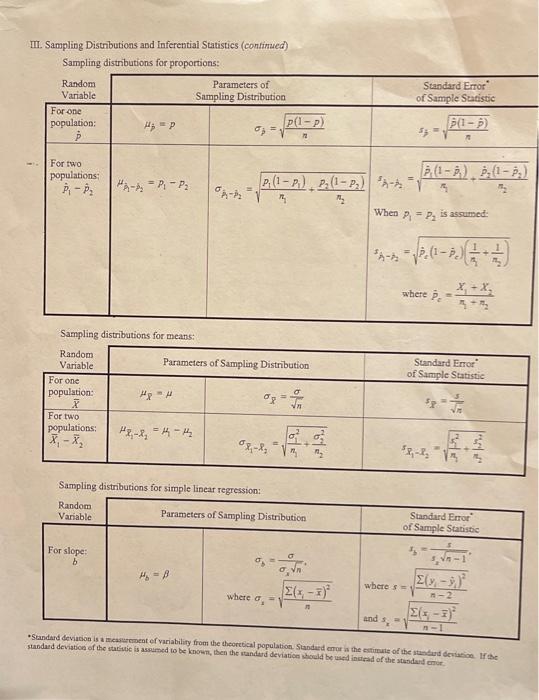 III. Sampling Distributions and Inferential Statistics (continued)
Sampling distributions for proportions:
Random Variable | Parameters of Sampling Distribution | Standard Error* of Sample Statistic
For one population: p̂ | μ_p̂ = p | σ_p̂ = √(p(1−p)/n) | s_p̂ = √(p̂(1−p̂)/n)
For two populations: p̂₁ − p̂₂ | μ_p̂₁−p̂₂ = p₁ − p₂ | σ_p̂₁−p̂₂ = √(p₁(1−p₁)/n₁ + p₂(1−p₂)/n₂) | s_p̂₁−p̂₂ = √(p̂₁(1−p̂₁)/n₁ + p̂₂(1−p̂₂)/n₂)
When p₁ = p₂ is assumed:
s_p̂₁−p̂₂ = √(p̂_c(1−p̂_c)(1/n₁ + 1/n₂))
where p̂_c = (X₁ + X₂)/(n₁ + n₂)
Sampling distributions for means:
Random Variable | Parameters of Sampling Distribution | Standard Error* of Sample Statistic
For one population: X̄ | μ_X̄ = μ | σ_X̄ = σ/√n | s_X̄ = s/√n
For two populations: X̄₁ − X̄₂ | μ_X̄₁−X̄₂ = μ₁ − μ₂ | σ_X̄₁−X̄₂ = √(σ₁²/n₁ + σ₂²/n₂) | s_X̄₁−X̄₂ = √(s₁²/n₁ + s₂²/n₂)
Sampling distributions for simple linear regression:
Random Variable | Parameters of Sampling Distribution | Standard Error* of Sample Statistic
For slope: b | μ_b = β | σ_b = σ/(σ_x√n), | s_b = s/(s_x√(n−1)),
where σ_x = √(Σ(x_i − x̄)²/n) | where s = √(Σ(y_i − ŷ_i)²/(n−2))
and s_x = √(Σ(x_i − x̄)²/(n−1))
*Standard deviation is a measurement of variability from the theoretical population. Standard error is the estimate of the standard deviation. If the
standard deviation of the statistic is assumed to be known, then the standard deviation should be used instead of the standard error.